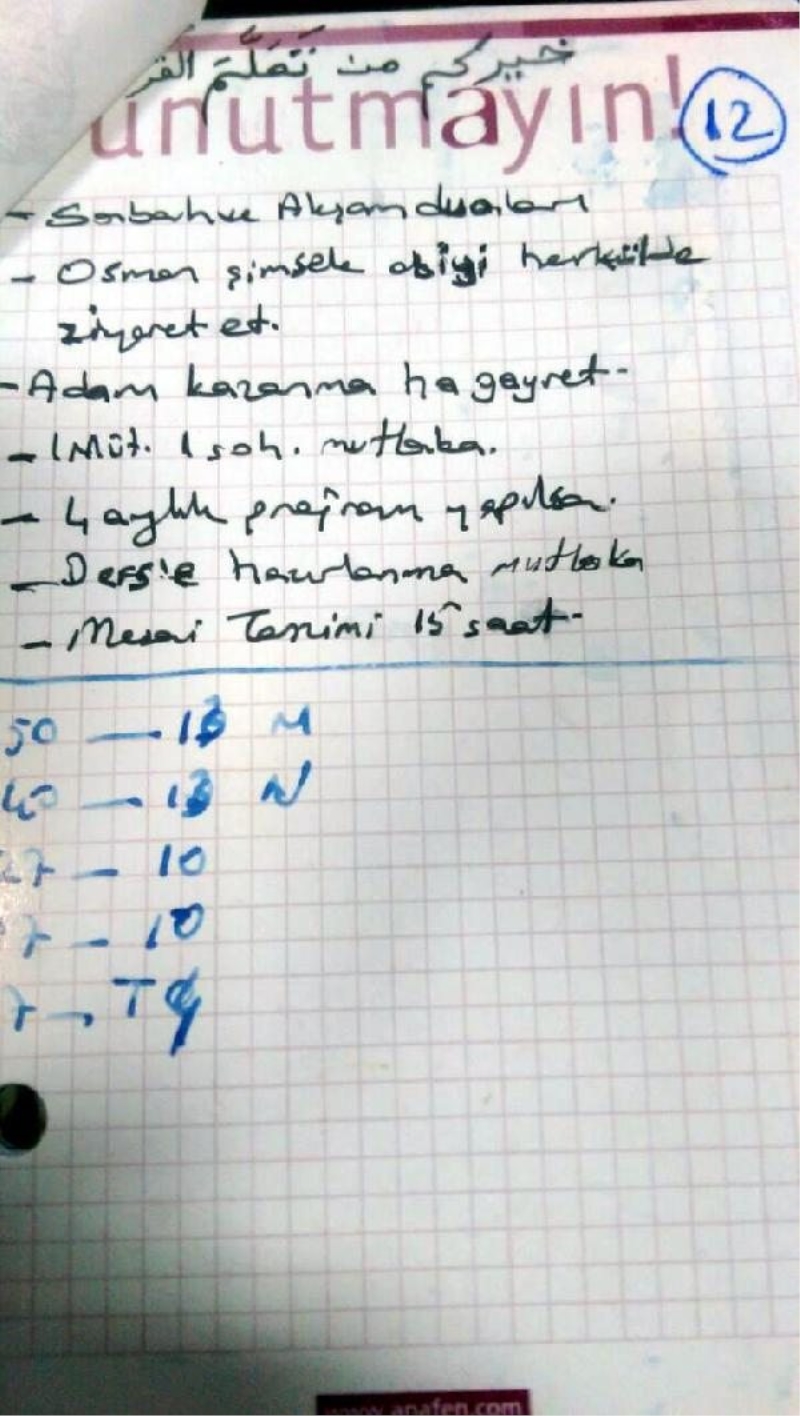 خيركم من تَعَلَّمَ القر
unutmayın!
12
- Sabah ve Akşam duaları
- Osman şimşek abiyi herkülde
ziyaret et.
- Adam kazanma ha gayret.
- 1 Müt. 1 soh. mutlaka.
- 4 aylık program yapılsa.
- Derse hazırlanma mutlaka
- Mesai Tanimi 15 saat.
50 — 13 M
40 — 13 N
27 — 10
7 — 10
7 → T
www.anafen.com